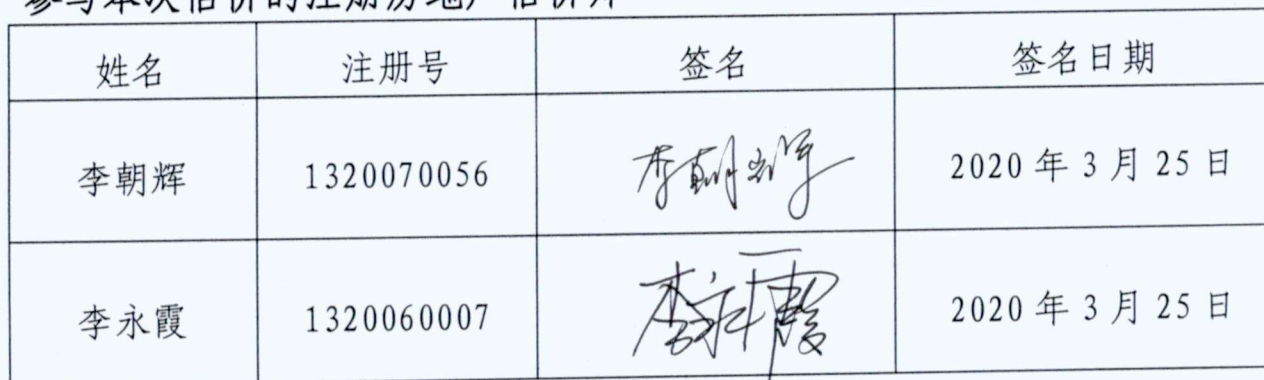 参与本次估价的注册房地产估价师
姓名 注册号 签名 签名日期
李朝辉 1320070056 李朝辉 2020年3月25日
李永霞 1320060007 李永霞 2020年3月25日